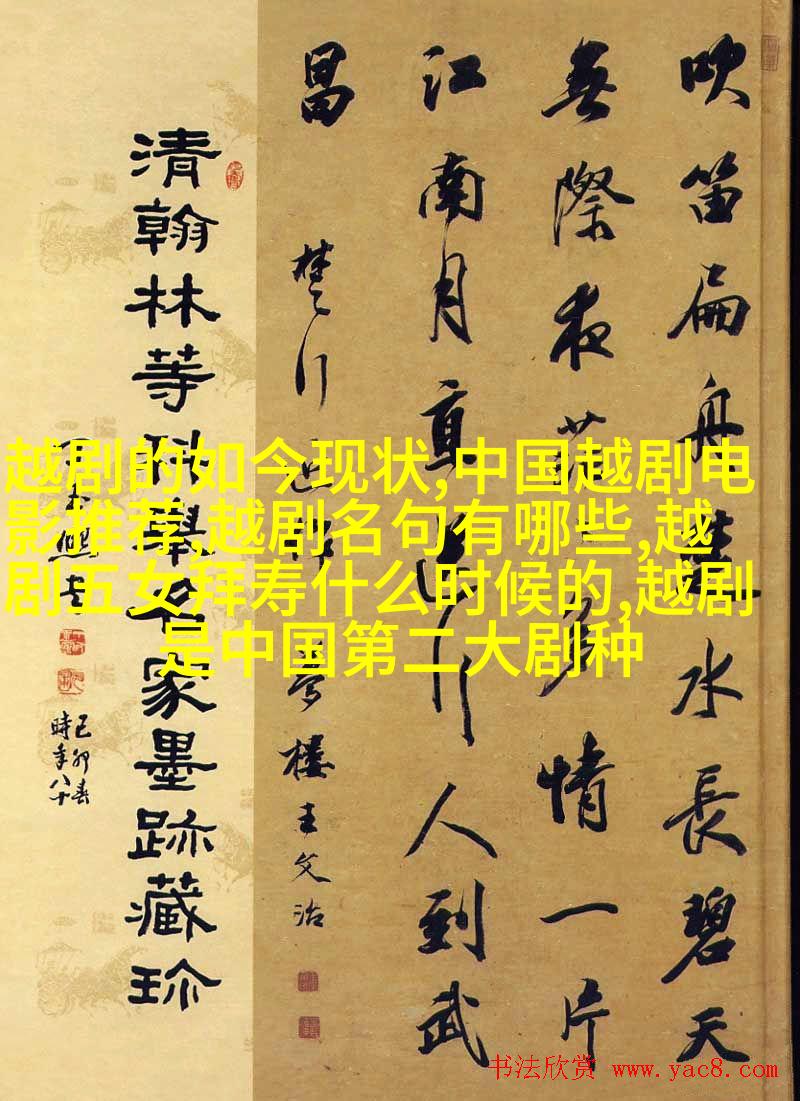 越剧的如今现状,中国越剧电
影推荐,越剧名句有哪些,越
剧五女拜寿什么时候的,越剧
是中国第二大剧种
吹笛扁舟楚水長碧天
無際夜茫多情一片
江南月直送行人到武
昌
楚行近作 夢樓王文治
清翰林等科舉名家墨跡藏珍
己卯春
時年八十
书法欣赏 www.yac8.com